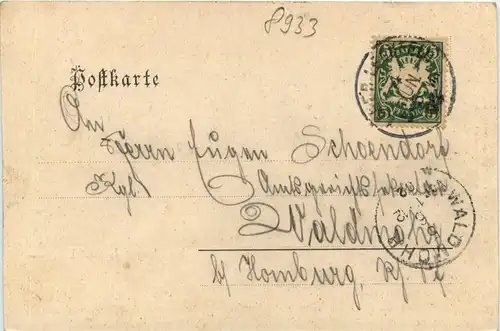 8933
Postkarte
An
Herrn Eugen Schoendorf
Kgl. Amtsgerichtssekretär
Waldmohr
b/ Homburg,
WALDMOHR